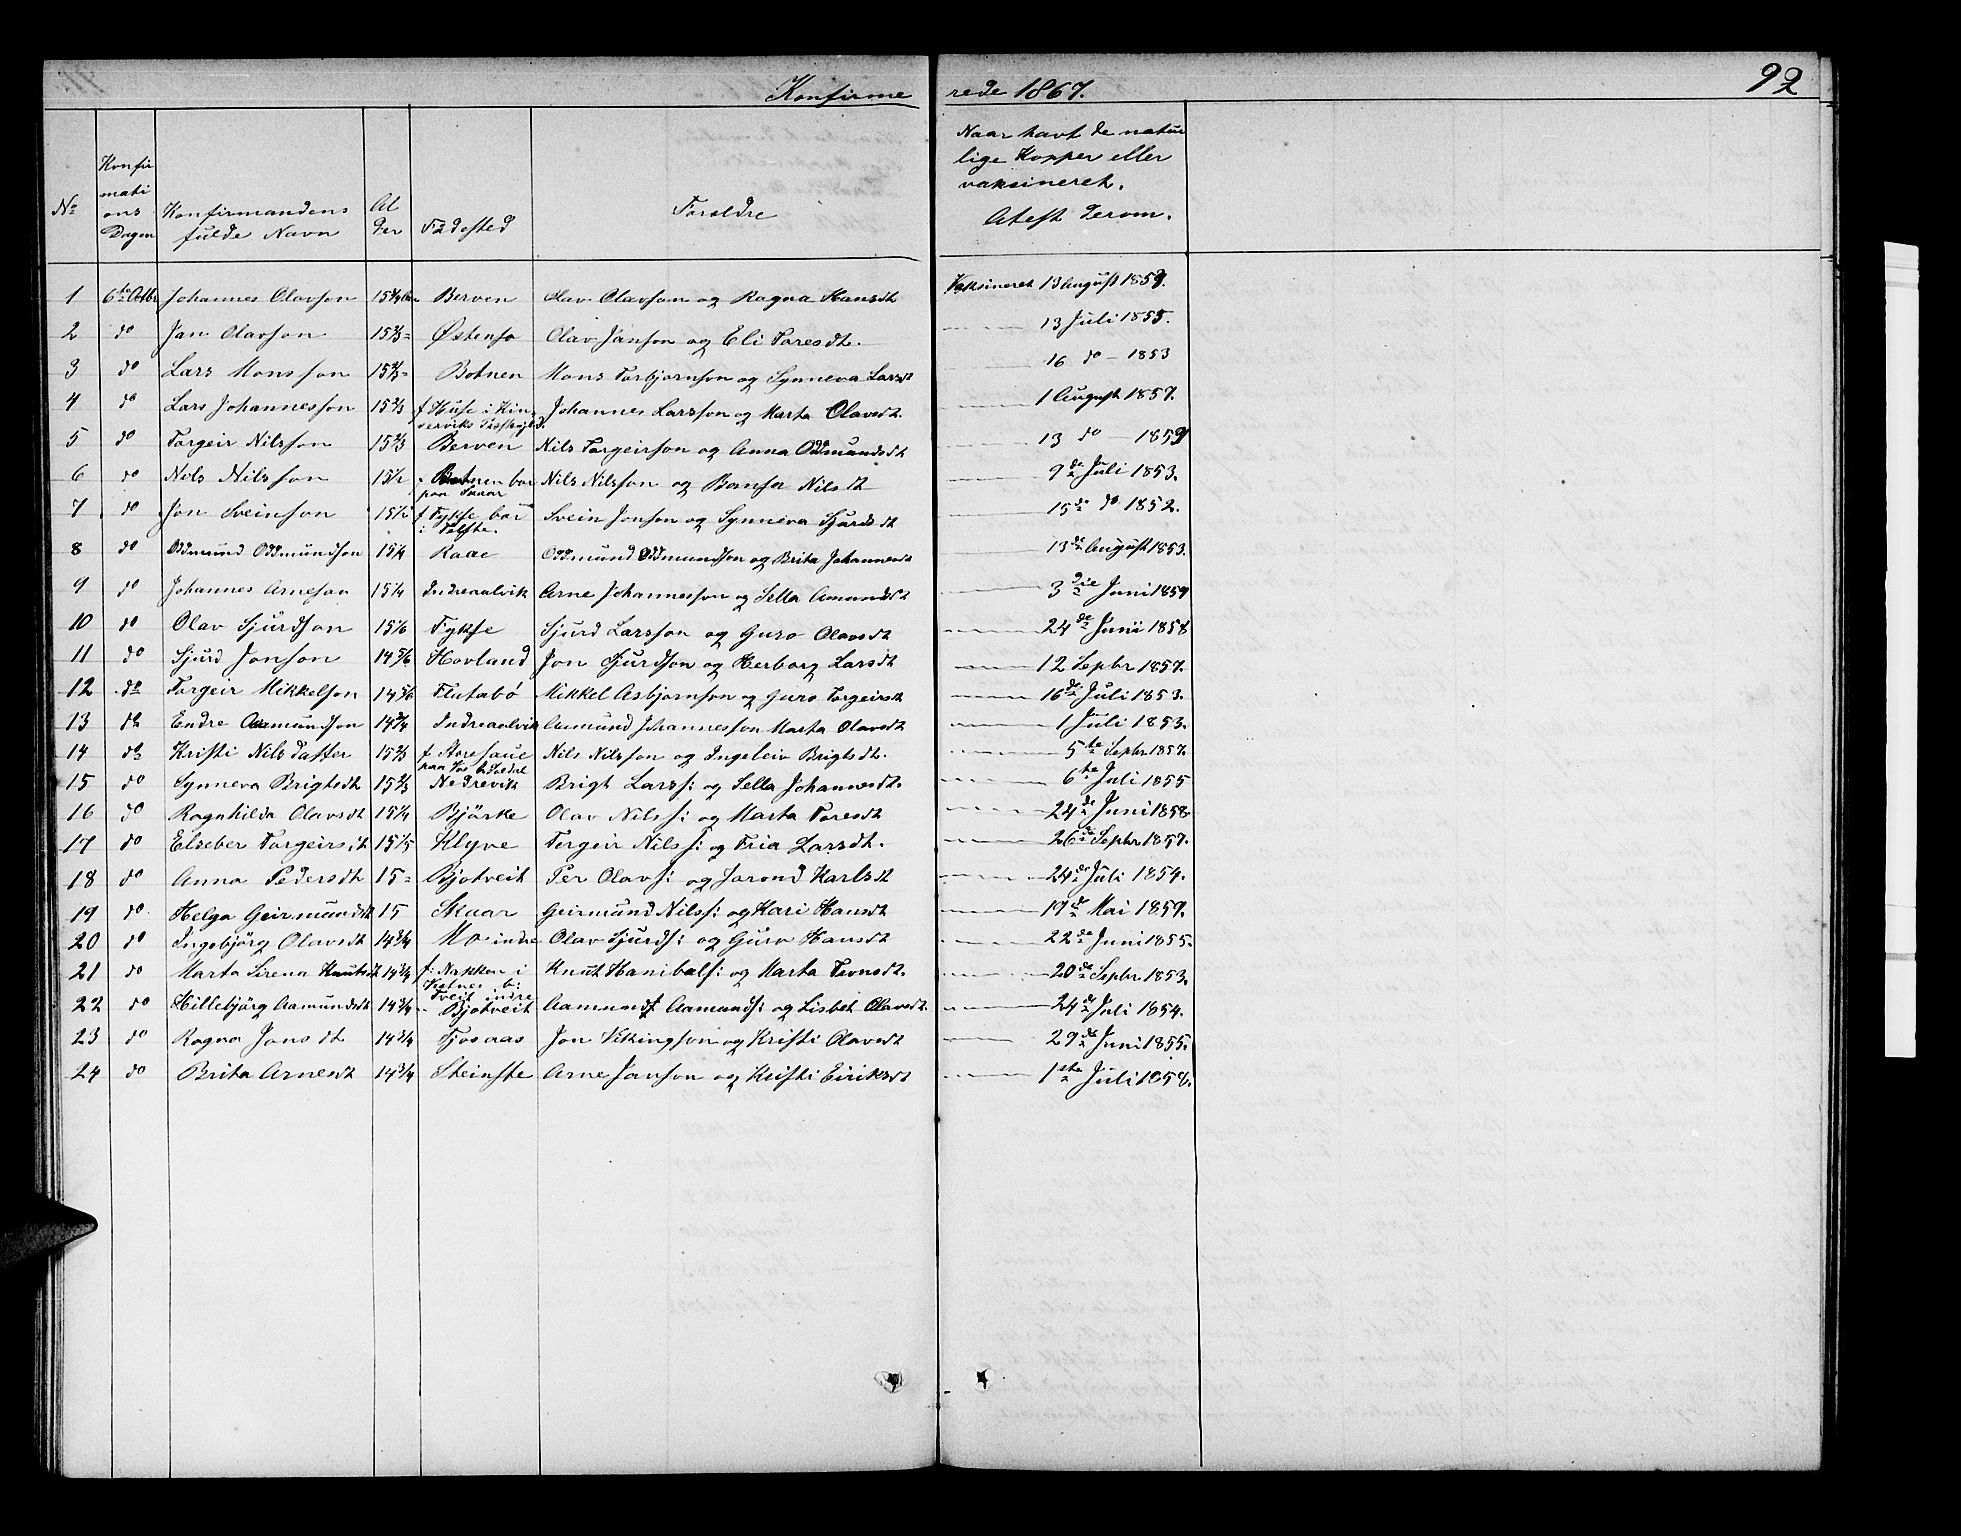 Konfirmerede 1867. 92
No Konfirmations Dagen Konfirmandens fulde Navn Alder Fødested Foreldre Naar havt de naturlige Kopper eller vaksineret. Atest derom.
1 6te Octbr Johannes Olavson 15 3/4 Berven Olav Olavson og Ragna Hansdt Vaksineret 13 August 1859.
2 do Jan Olavson 15 2/3 Østensø Olav Janson og Eli Toresdt. 13 Juli 1855.
3 do Lars Monsson 15 2/3 Botnen Mons Torbjørnson og Synneva Larsdt 16 do 1853
4 do Lars Johannesson 15 2/3 f Huse i Kinserviks Prestegjeld Johannes Larsson og Marta Olavsdt. 1 August 1857.
5 do Torgeir Nilsson 15 2/3 Berven Nils Torgeirson og Anna Oddmundsdt 13 do 1859
6 do Nils Nilsson 15 1/2 Botnen bor paa Skaar Nils Nilsson og Nilsdt 9de Juli 1853.
7 do Jon Sveinson 15 1/2 f Fykse bor i Tolfte. Svein Jonson og Synneva Sjurdsdt 15de do 1852.
8 do Oddmund Oddmundson 15 1/4 Raae Oddmund Oddmundson og Brita Johannesdt 13de August 1853.
9 do Johannes Arneson 15 1/4 Indreaalvik Arne Johannesson og Sella Amundsdt 3die Juni 1859
10 do Olav Sjurdson 15 1/6 Fykse Sjurd Larsson og Guro Olavsdt 24de Juni 1858
11 do Sjurd Jonson 14 5/6 Hovland Jon Sjurdson og Herborg Larsdt 12 Sepbr 1857.
12 do Torgeir Mikkelson 14 5/6 Flutabø Mikkel Asbjørnson og Guro Torgeirsdt 16de Juli 1853.
13 do Endre Aamundson 14 3/4 Indreaalvik Aamund Johannesson Marta Olavsdt 1 Juli 1853.
14 do Kristi Nilsdatter 15 2/3 f Store paa Vos Nils Nilsson og Ingeleiv Brigtsdt. 5te Sepbr 1857.
15 do Synneva Brigtsdt 15 2/3 Nedrevik Brigt Larss: og Sella Johannesdt. 6te Juli 1855
16 do Ragnhilda Olavsdt 15 1/4 Bjørke Olav Nilss: og Marta Toresdt 24de Juni 1858.
17 do Elseber Torgeirsdt 15 1/5 Klyve Torgeir Nilss: og Larsdt. 26de Sepbr 1857.
18 do Anna Pedersdt 15 Bjotveit Per Olavs: og Jorond Karlsdt 24de Juli 1854.
19 do Helga Geirmundsdt 15 Skaar Geirmund Nilss: og Kari Hansdt 19de Mai 1859.
20 do Ingebjörg Olavsdt 14 3/4 Mo indre Olav Sjurds: og Guro Hansdt 22de Juni 1855.
21 do Marta Sirena Knutsdt 14 3/4 f: Nakken i b: Tveit indre Knut Hanibals: og Marta Ivonsdt. 20de Sepbr 1853.
22 do Hillebjörg Aamundsdt 14 3/4 Bjotveit Aamund Aamunds: og Lisbet Olavsdt. 24de Juli 1854.
23 do Ragna Jonsdt 14 3/4 Fjosaas Jon Vikingson og Kristi Olavsdt 29de Juni 1855.
24 do Brita Arnesdt 14 3/4 Steinstø Arne Janson og Kristi Eiriksdt 1ste Juli 1858.